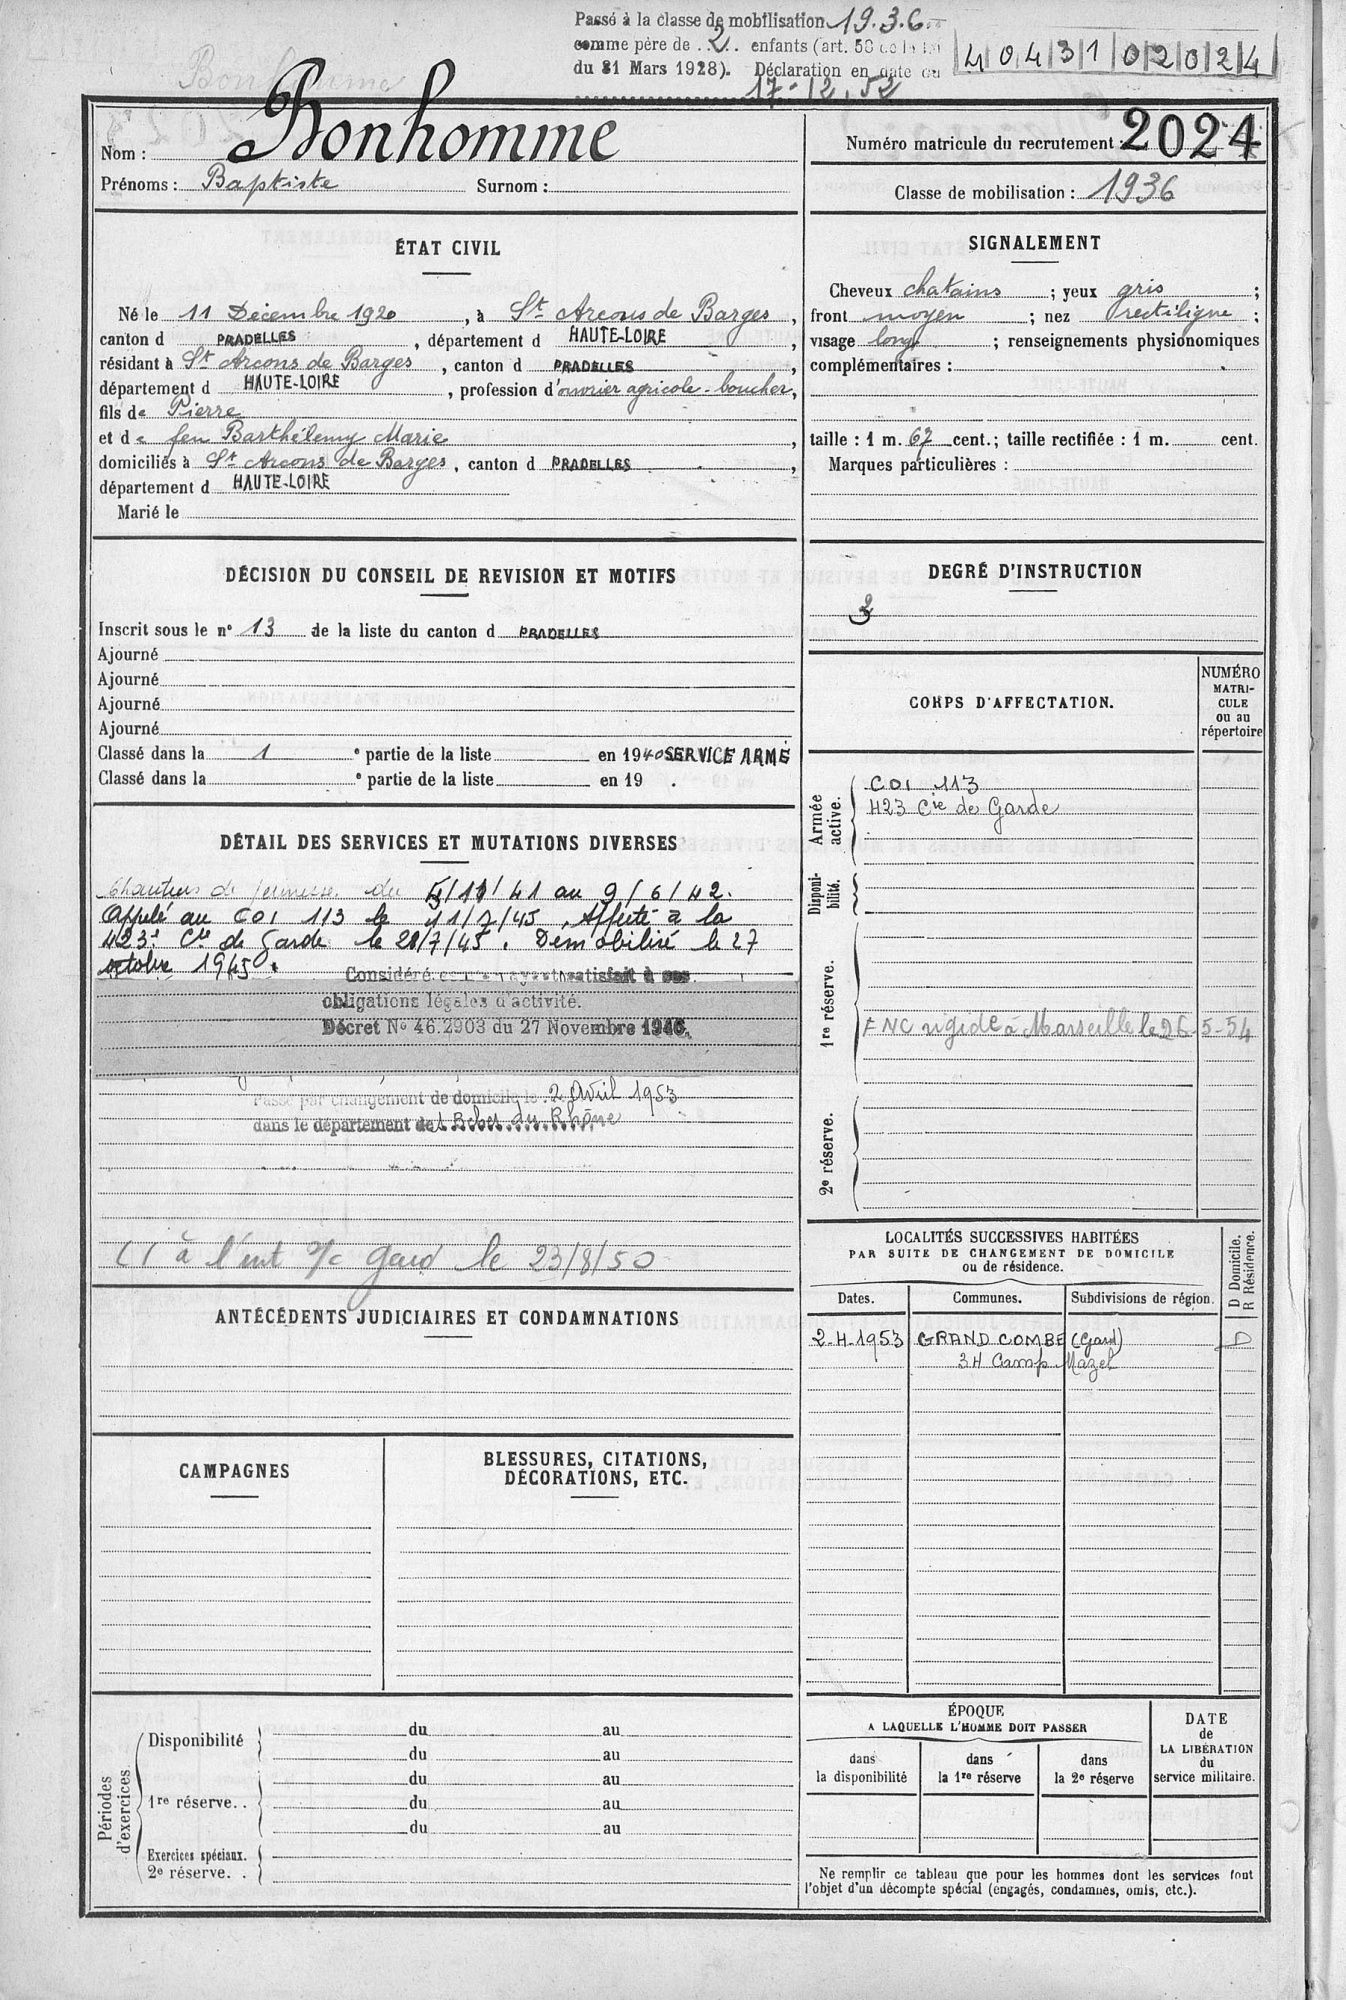 Passé à la classe de mobilisation 1936
comme père de 2 enfants (art. 58 de la loi
du 31 Mars 1928). Déclaration en date du
17-12.52
4043102024
Bonhomme
Nom : Bonhomme
Prénoms : Baptiste Surnom :
Numéro matricule du recrutement : 2024
Classe de mobilisation : 1936
ÉTAT CIVIL
Né le 11 Décembre 1920, à St Arcons de Barges,
canton d PRADELLES, département d HAUTE-LOIRE,
résidant à St Arcons de Barges, canton d PRADELLES,
département d HAUTE-LOIRE, profession d'ouvrier agricole - boucher,
fils de Pierre
et de feu Barthélemy Marie,
domiciliés à St Arcons de Barges, canton d PRADELLES,
département d HAUTE-LOIRE
Marié le
SIGNALEMENT
Cheveux chatains ; yeux gris ;
front moyen ; nez rectiligne ;
visage long ; renseignements physionomiques
complémentaires :
taille : 1 m. 67 cent.; taille rectifiée : 1 m. cent.
Marques particulières :
DÉCISION DU CONSEIL DE REVISION ET MOTIFS
Inscrit sous le n° 13 de la liste du canton d PRADELLES
Ajourné
Ajourné
Ajourné
Ajourné
Classé dans la 1 e partie de la liste en 1940 SERVICE ARMÉ
Classé dans la e partie de la liste en 19 .
DEGRÉ D'INSTRUCTION
DÉTAIL DES SERVICES ET MUTATIONS DIVERSES
Chantiers de jeunesse du /11/41 au 9/6/42.
Appelé au COI 113 le 11/7/45. Affecté à la
423e Cie de Garde le 28/7/45. Démobilisé le 27
octobre 1945.
Considéré comme ayant satisfait à ses
obligations légales d'activité.
Décret N° 46.2903 du 27 Novembre 1946.
Passé par changement de domicile le 2 Avril 1953
dans le département de Bches du Rhône
à l'ent Gard le 23/8/50
CORPS D'AFFECTATION.
NUMÉRO
MATRI-
CULE
ou au
répertoire
Armée
active.
COI 113
423 Cie de Garde
Disponi-
bilité.
1re réserve.
FNC rigide à Marseille le 26-5-54
2e réserve.
LOCALITÉS SUCCESSIVES HABITÉES
PAR SUITE DE CHANGEMENT DE DOMICILE
ou de résidence.
D Domicile.
R Résidence.
Dates. Communes. Subdivisions de région.
2-4-1953 GRAND COMBE (Gard) D
34 Camp Mazel
ANTÉCÉDENTS JUDICIAIRES ET CONDAMNATIONS
CAMPAGNES
BLESSURES, CITATIONS,
DÉCORATIONS, ETC.
Périodes
d'exercices
Disponibilité
du au
du au
1re réserve. .
du au
du au
du au
Exercices spéciaux.
2e réserve. .
ÉPOQUE
A LAQUELLE L'HOMME DOIT PASSER
dans
la disponibilité
dans
la 1re réserve
dans
la 2e réserve
DATE
de
LA LIBÉRATION
du
service militaire.
Ne remplir ce tableau que pour les hommes dont les services font
l'objet d'un décompte spécial (engagés, condamnés, omis, etc.).